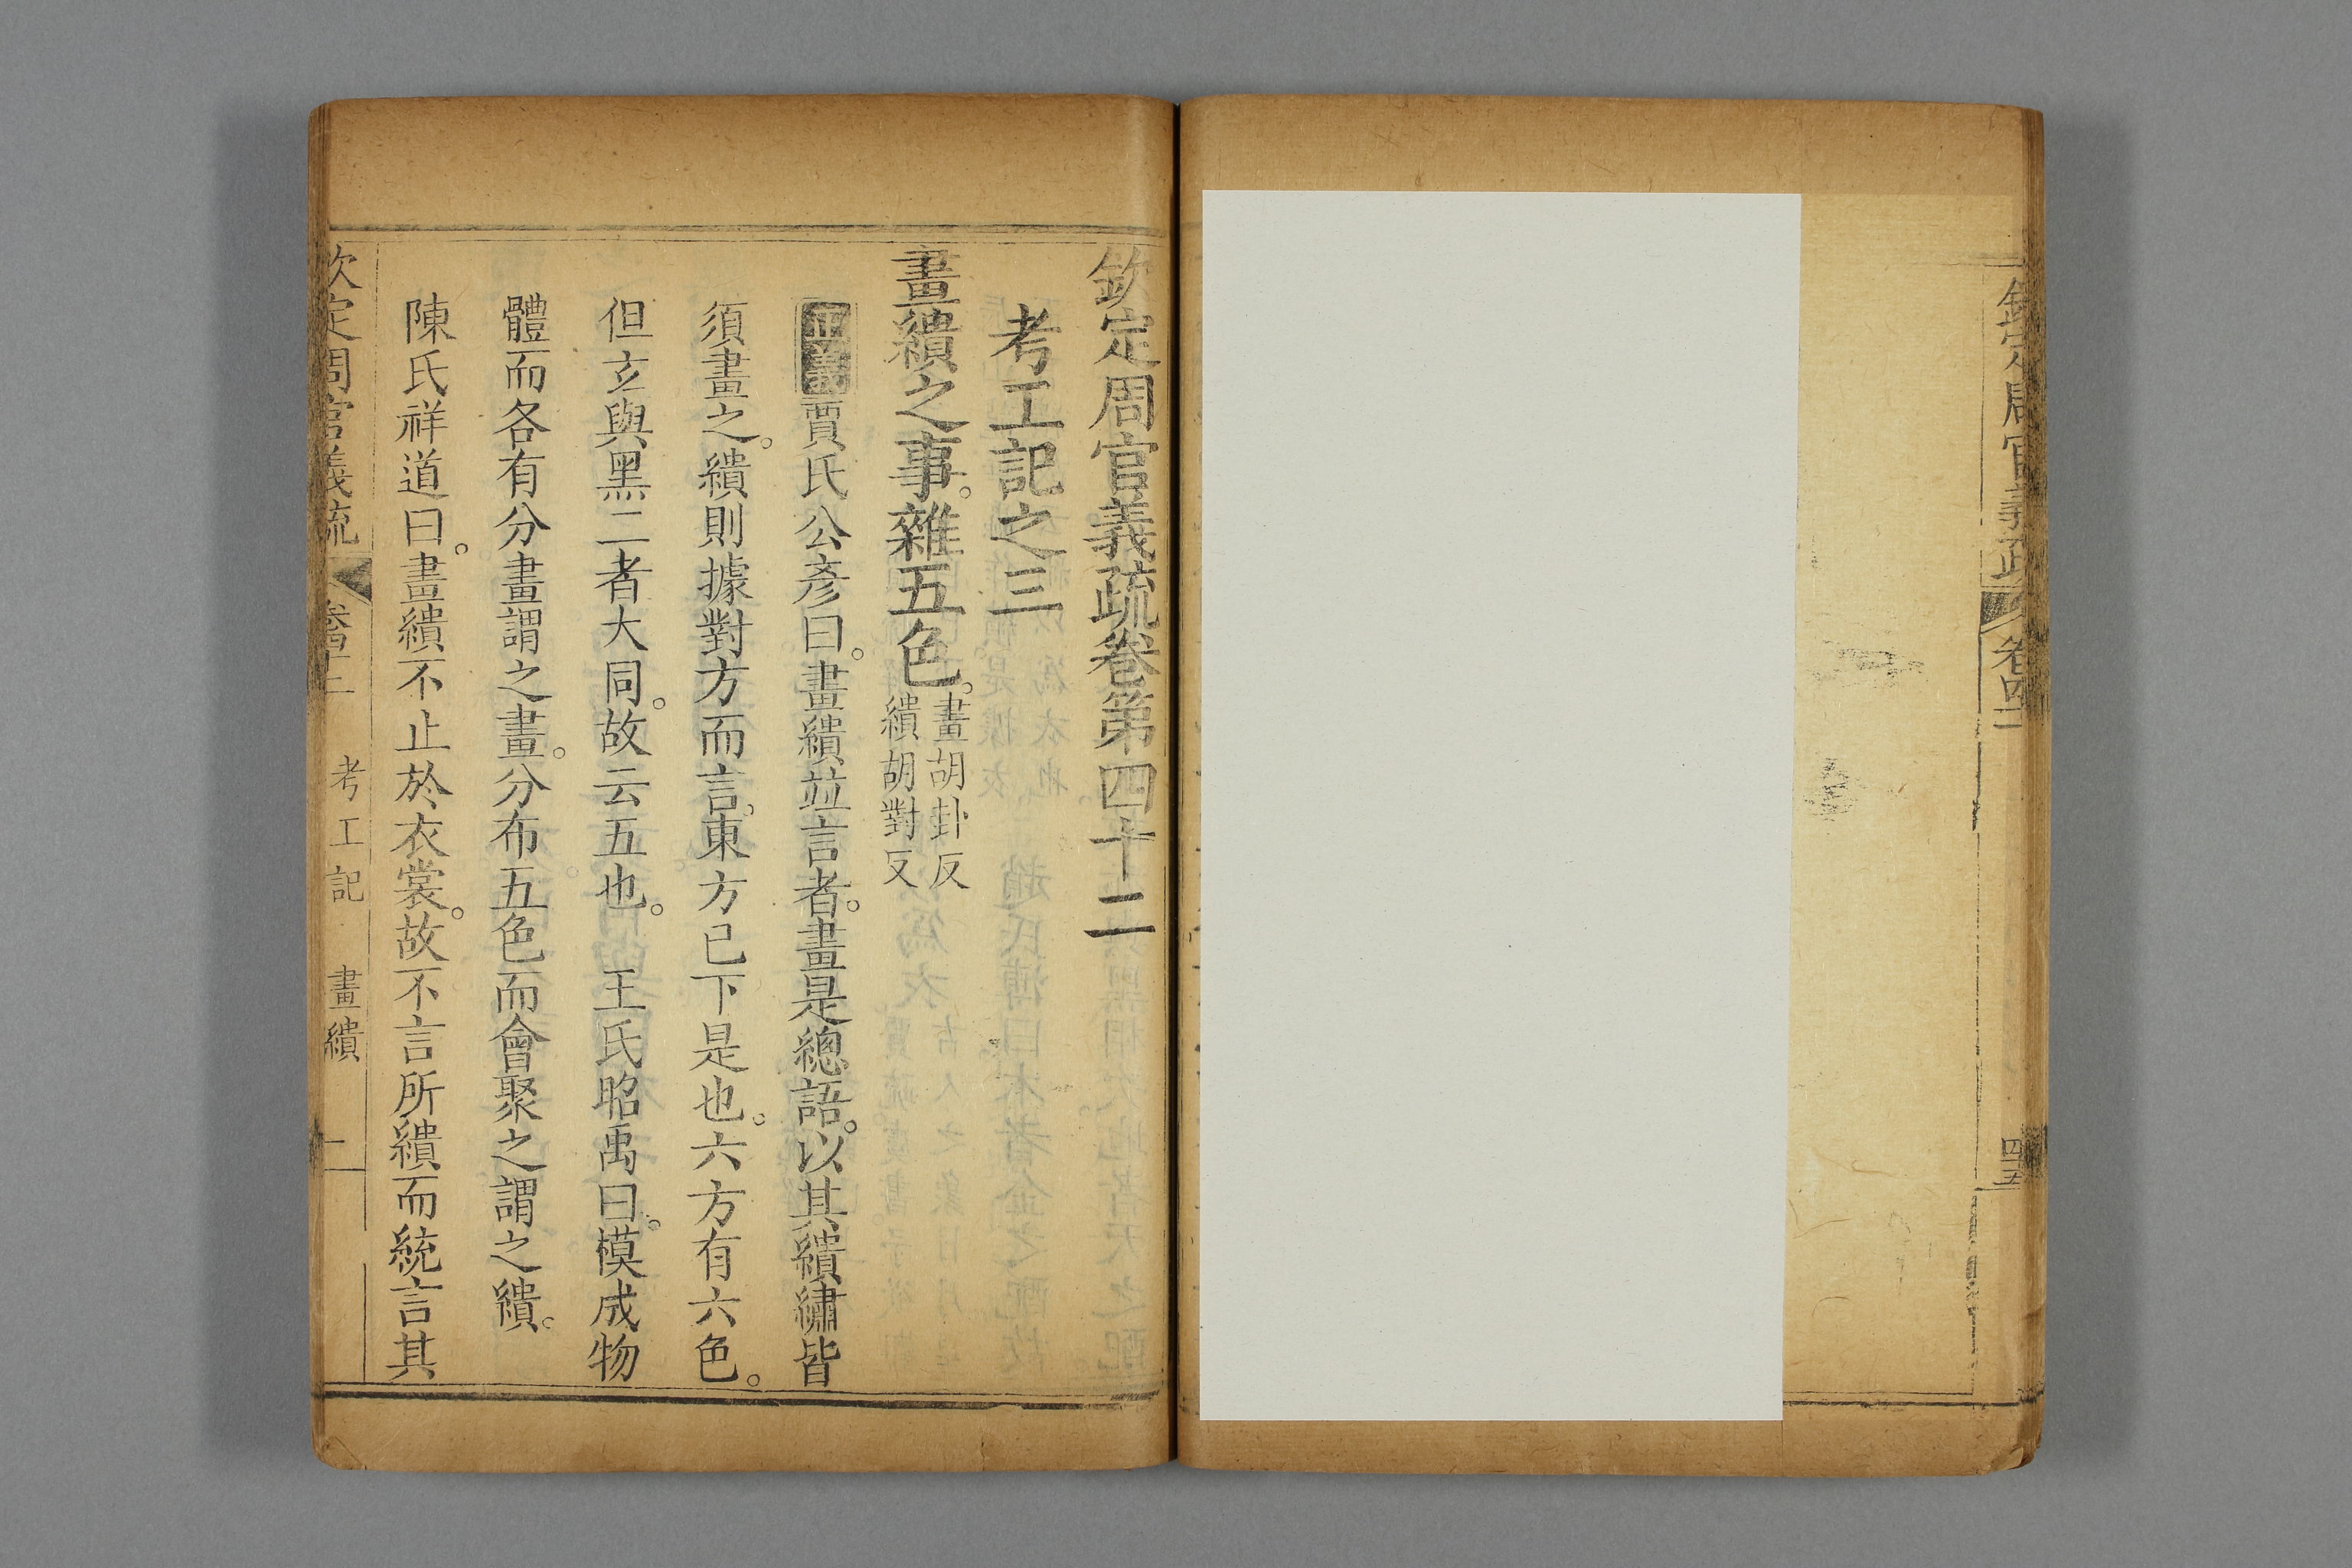 欽定周官義疏
卷四二
四五
欽定周官義疏卷第四十二
考工記之三
畫繢之事。雜五色。畫胡卦反
繢胡對反
正義賈氏公彥曰。畫繢並言者。畫是總語。以其繢繡皆
須畫之。繢則據對方而言。東方已下是也。六方有六色。
但玄與黑二者大同。故云五也。 王氏昭禹曰。模成物
體而各有分畫謂之畫。分布五色而會聚之謂之繢。
陳氏祥道曰。畫繢不止於衣裳。故不言所繢而統言其
欽定周官義疏
考工記 畫繢 一